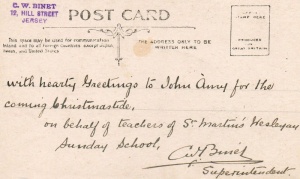 C. W. BINET
12, HILL STREET
JERSEY
POST CARD
This space may be used for communication
Inland and to all foreign countries, except
and United States
THE ADDRESS ONLY TO BE
WRITTEN HERE.
PRODUCED
IN
GREAT BRITAIN
with hearty Greetings to John Amy for the
coming Christmastide,
on behalf of teachers of St. Martin's Wesleyan
Sunday School,
C W Binet
Superintendent.